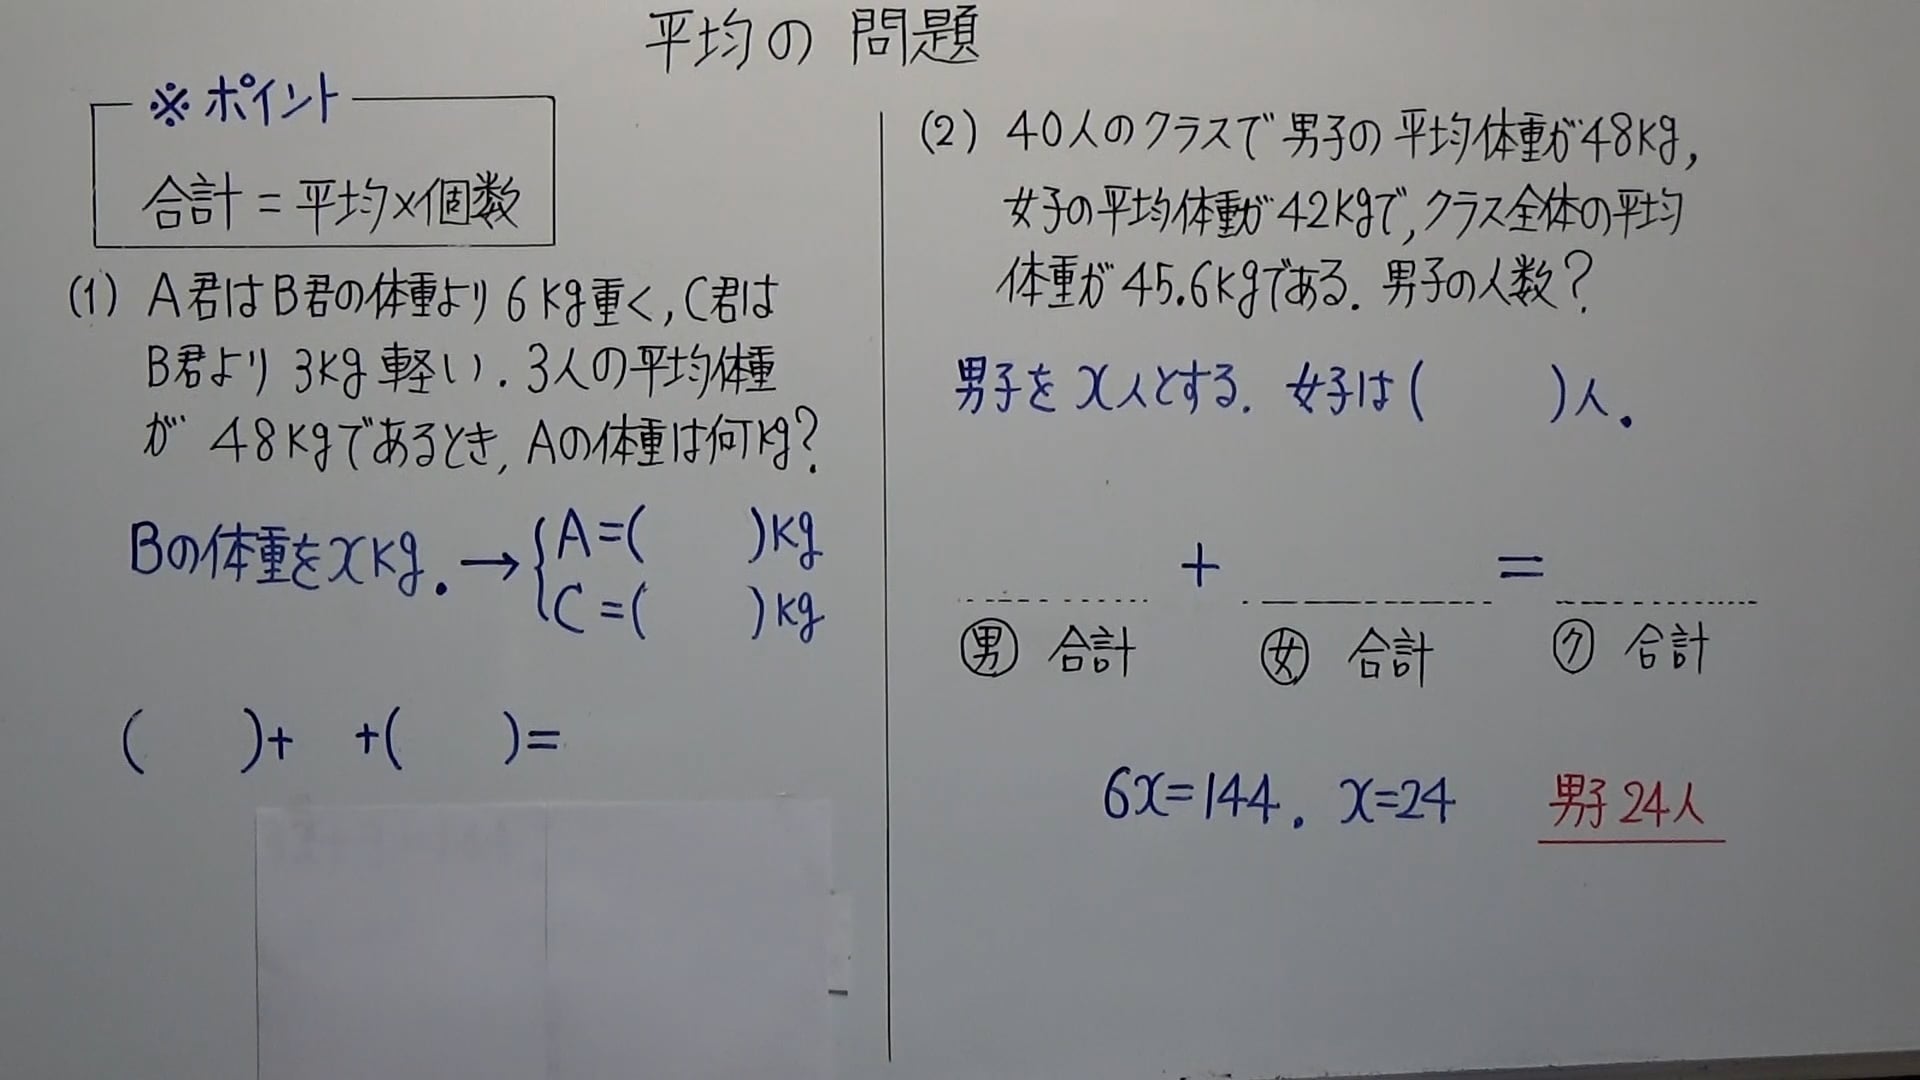 平均の 問題
※ポイント
合計 = 平均×個数
(1) A君はB君の体重より 6kg重く, C君は
B君より 3kg 軽い. 3人の平均体重
が 48kgであるとき, Aの体重は何kg?
Bの体重をxkg. → { A=( )kg
C=( )kg
( )+ +( )=
(2) 40人のクラスで 男子の 平均体重が48kg,
女子の平均体重が42kgで, クラス全体の平均
体重が 45.6kgである. 男子の人数?
男子を x人とする. 女子は( )人.
+ =
男 合計 女 合計 ク 合計
6x=144. x=24 男子 24人